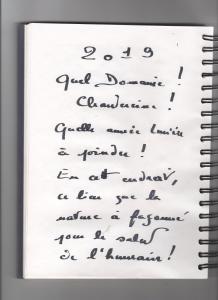 2019
Quel Domaine !
Chandercine !
Quelle année
à joindre !
En cet endroit,
ce lieu que la
nature à façonné
pour le salut
de l'humain !